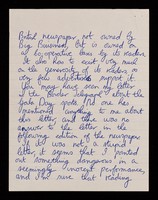 British newspaper not owned by
Big Business, but is owned on
a co-operative basis by its readers.
It also has to exist very much
on the generosity of its readers in
very like additional support it.
You may have seen my letter
in the Worker Standpoint about the
Yoko Day spots. No one has
mentioned anything to me about
this letter, and there was no
answer to the letter in the
following edition of the newspaper
If it was not a stupid
letter, it seems that I pointed
out something dangerous in a
seemingly innocent performance,
and I'm sure that reading